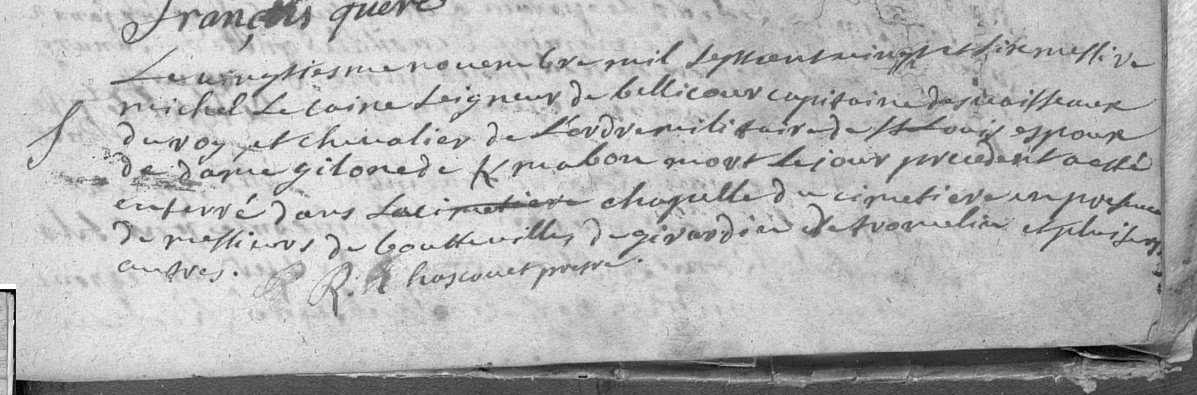 françois queré
Le vingtiesme novembre mil sept cent vingt et six messire
michel Le caire Seigneur de bellicour capitaine des vaisseaux
du roy et chevalier de L'ordre militaire de St Louis espoux
de dame gilone de K mabou mort le jour precedent a esté
enterré dans La cimetiere chapelle du cimetiere en presence
de messieurs de boutteville, de girardin de tromelin et plusieurs
autres. R. hascouet prestre.